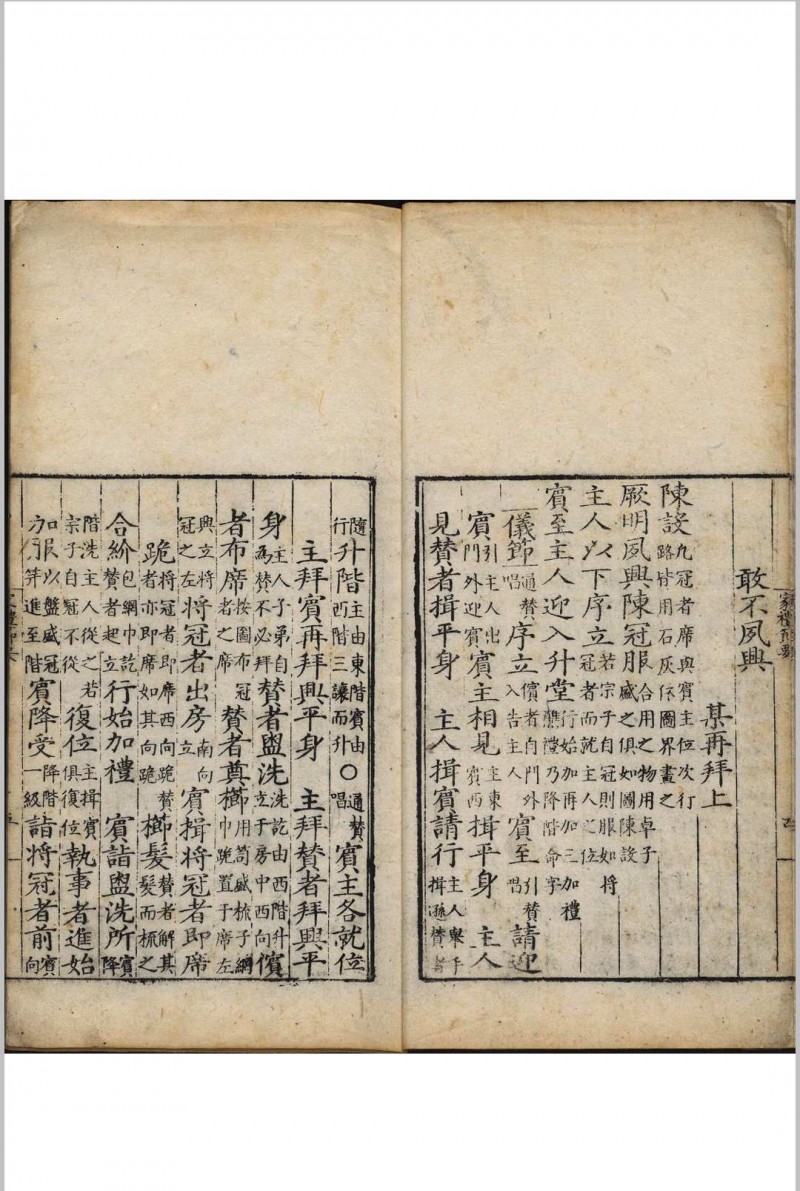 敢不夙興
某再拜上
陳設九冠者席與賓主位次行路皆用石灰依圖界畫之
厥明夙興陳冠服合用之物用卓子盛之俱如圖陳設
主人以下序立若宗子自冠則服如將冠者而就主人之位
賓至主人迎入升堂行始加再加三加禮醮禮乃降階命字
儀節通贊唱序立儐者自門外入告主人賓至引贊唱請迎
賓引主人出門外迎賓賓主相見主東賓西揖平身 主人
見贊者揖平身 主人揖賓請行主人舉手揖遜贊者
隨行升階主由東階賓由西階三讓而升○通贊唱賓主各就位
主拜賓再拜興平身 主拜贊者拜興平
身主人子弟自為贊不必拜贊者盥洗洗訖由西階升立于房中西向儐
者布席按圖布冠者之席贊者奠櫛用笥盛梳子網巾跪置于席左
興立將冠之左將冠者出房南向立賓揖將冠者即席
跪將冠者即席西向跪贊者亦即席如其向跪櫛髮贊者解其髮而梳之
合紒包網巾訖贊者起立行始加禮 賓詣盥洗所賓降
階洗主人從之若宗子自冠不從復位主揖賓俱復位執事者進始
加服以盤盛冠笄進至階賓降受降階一級詣將冠者前賓向